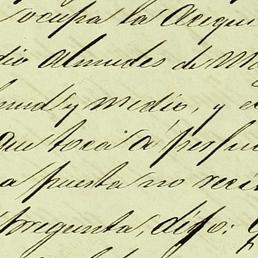 ocupa la Acequi
dio almudes de M
mud y medio, y e
que toca á perju
a puesta no reci
pregunta, dijo: